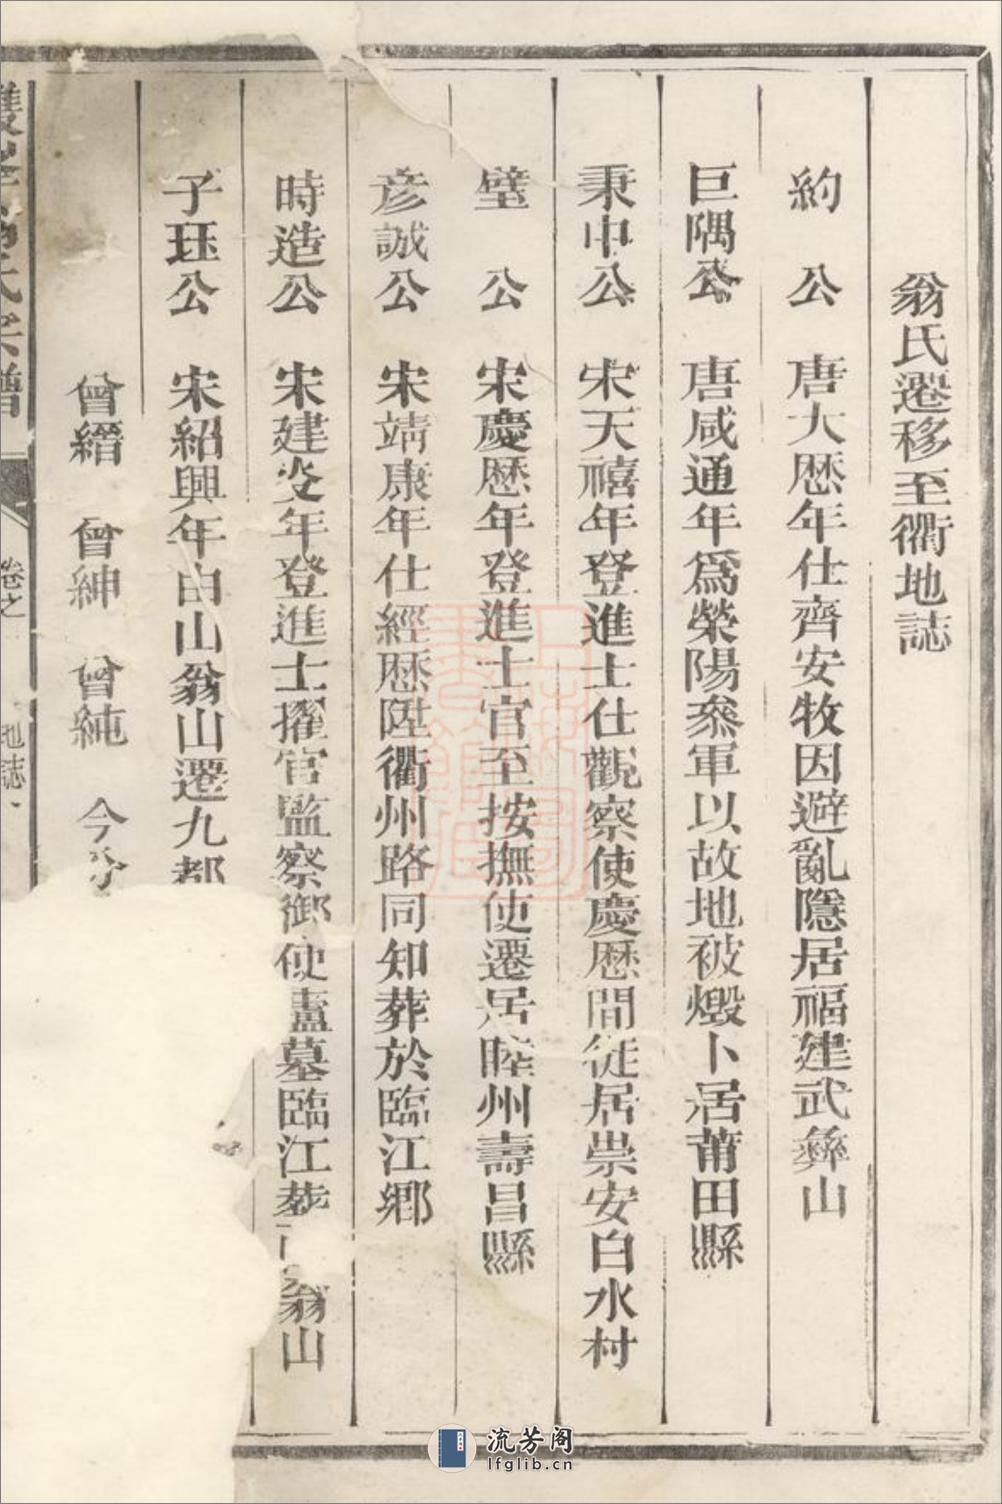 翁氏遷移至衢地誌
約 公 唐大歷年仕齊安牧因避亂隱居福建武彝山
巨隅公 唐咸通年爲榮陽叅軍以故地被燬卜居莆田縣
秉中公 宋天禧年登進士仕觀察使慶歷間徙居崇安白水村
璧 公 宋慶歷年登進士官至按撫使遷居睦州壽昌縣
彦誠公 宋靖康年仕經歷陞衢州路同知葬於臨江鄉
時造公 宋建炎年登進士擢官監察御使廬墓臨江葬 翁山
子珏公 宋紹興年由山翁山遷九都
曾緡 曾紳 曾純 今分
氏宗譜
卷之
地誌
流芳阁
lfglib.cn